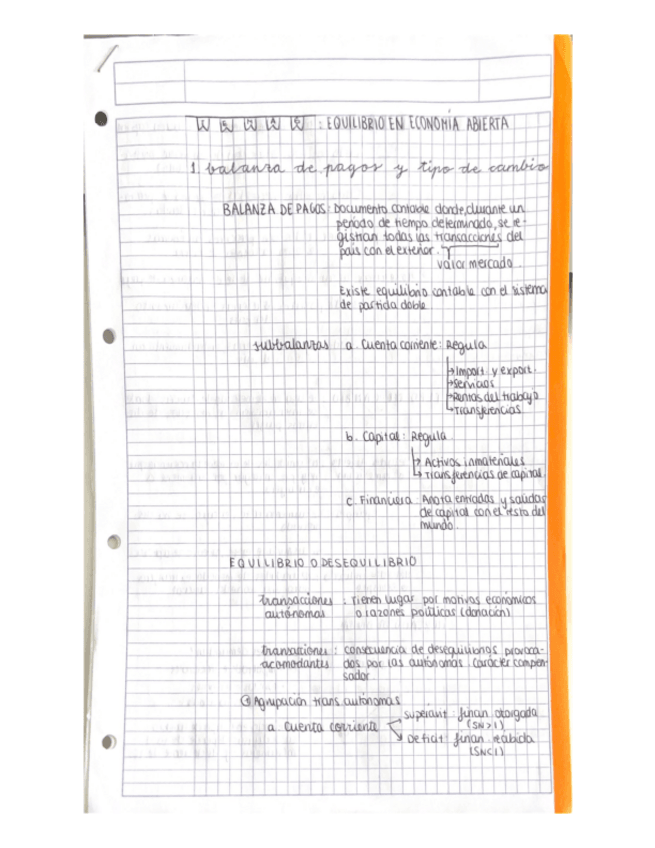 : EQUILIBRIO EN ECONOMÍA ABIERTA
1. balanza de pagos y tipo de cambio
BALANZA DE PAGOS: Documento contable donde, durante un
período de tiempo determinado, se re-
gistran todas las transacciones del
país con el exterior.
valor mercado
Existe equilibrio contable con el sistema
de partida doble
subbalanzas a. Cuenta corriente: Regula
Import. y export.
Servicios
Rentas del trabajo
Transferencias
b. Capital: Regula
Activos inmateriales
Transferencias de capital
c. Financiera: Anota entradas y salidas
de capital con el resto del
mundo.
EQUILIBRIO O DESEQUILIBRIO
Transacciones : Tienen lugar por motivos económicos
autónomas o razones políticas (donación)
Transacciones : consecuencia de desequilibrios provoca-
acomodantes dos por las autónomas. Carácter compen-
sador
① Agrupación trans. autónomas
a. Cuenta corriente
Superávit: finan. otorgada
(SN>1)
Déficit: finan. recibida
(SN<1)